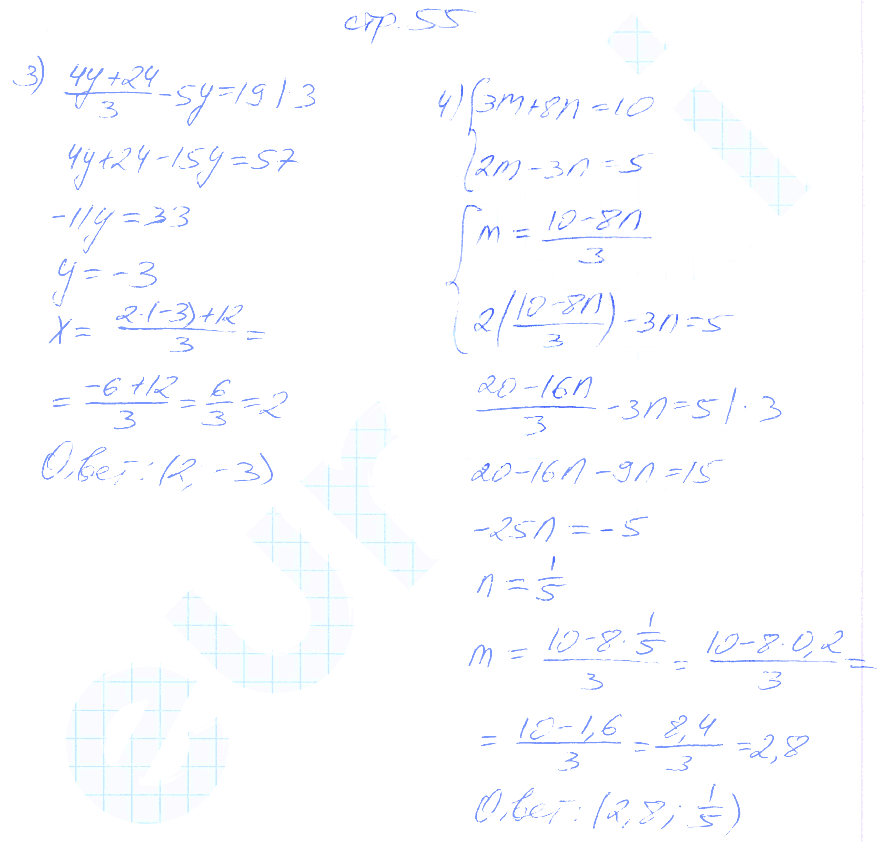 стр. 55
3) (4y+24)/3 - 5y = 19 | 3
4y+24-15y=57
-11y=33
y=-3
x = (2·(-3)+12)/3 =
= (-6+12)/3 = 6/3 = 2
Ответ: (2, -3)
4) { 3m+8n=10
2m-3n=5
{ m = (10-8n)/3
2((10-8n)/3) - 3n = 5
(20-16n)/3 - 3n = 5 | · 3
20-16n-9n=15
-25n=-5
n = 1/5
m = (10-8·1/5)/3 = (10-8·0,2)/3 =
= (10-1,6)/3 = 8,4/3 = 2,8
Ответ: (2,8; 1/5)
eur